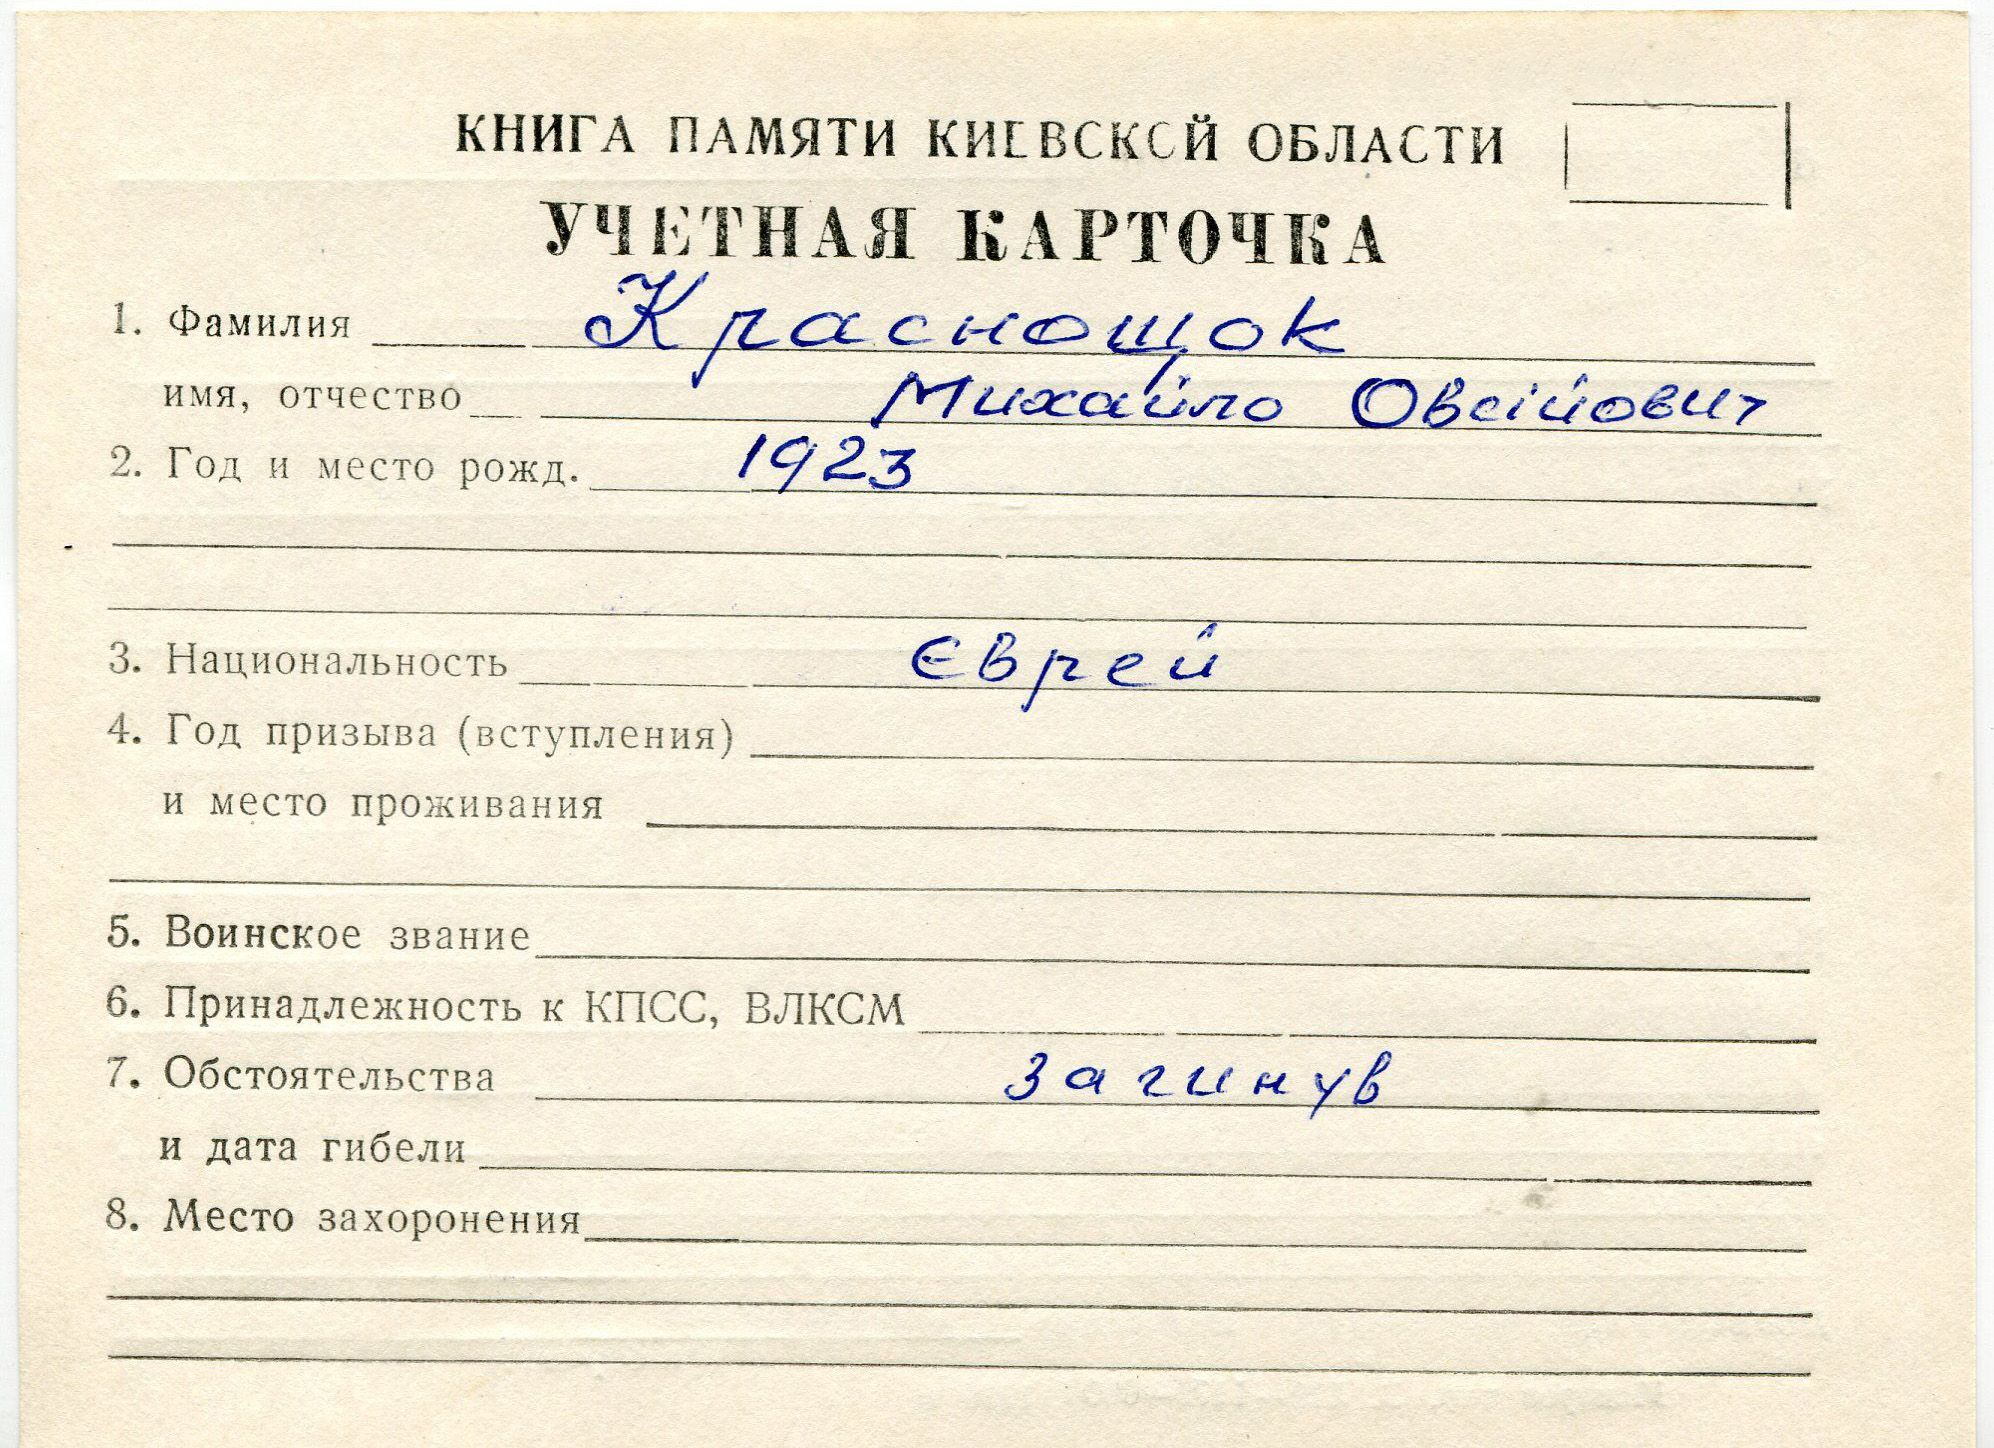 КНИГА ПАМЯТИ КИЕВСКОЙ ОБЛАСТИ
УЧЕТНАЯ КАРТОЧКА
1. Фамилия Краснощок
имя, отчество Михайло Овсійович
2. Год и место рожд. 1923
3. Национальность Єврей
4. Год призыва (вступления)
и место проживания
5. Воинское звание
6. Принадлежность к КПСС, ВЛКСМ
7. Обстоятельства загинув
и дата гибели
8. Место захоронения